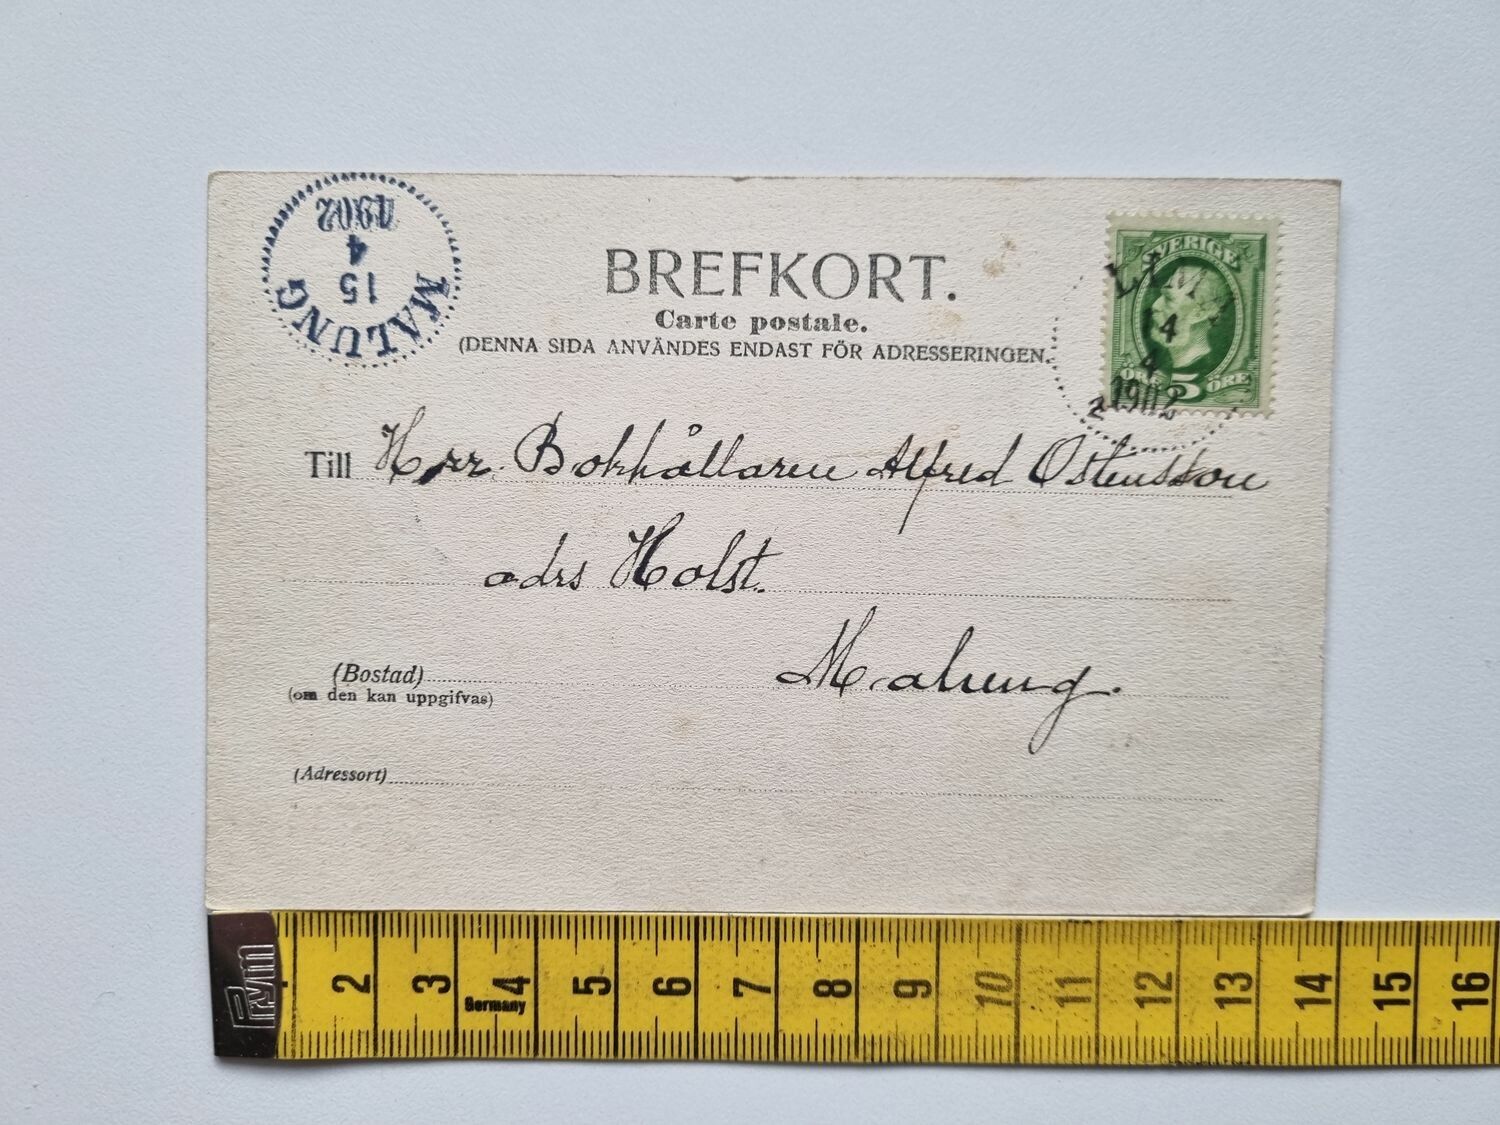 MALUNG
15
4
1902
BREFKORT.
Carte postale.
(DENNA SIDA ANVÄNDES ENDAST FÖR ADRESSERINGEN.
SVERIGE
ÖRE 5 ÖRE
LIMA
14
4
1902
2
Till Herr Bokhållaren Alfred Ostensson
adrs Holst.
Malung.
(Bostad)
(om den kan uppgifvas)
(Adressort)
Prym
2 3 4 5 6 7 8 9 10 11 12 13 14 15 16
Germany